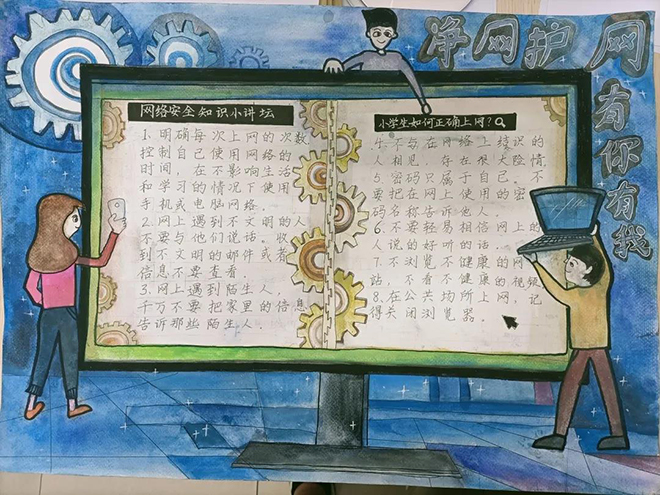 净网护网
有你有我
网络安全知识小讲坛
1.明确每次上网的次数
控制自己使用网络的
时间,在不影响生活
和学习的情况下使用
手机或电脑网络.
2.网上遇到不文明的人
不要与他们说话。收
到不文明的邮件或者
信息不要查看.
3.网上遇到陌生人,
千万不要把家里的信息
告诉那些陌生人.
小学生如何正确上网?
4.不与在网络上结识的
人相见,存在很大险情
5.密码只属于自己,不
要把在网上使用的密
码名称告诉他人.
6.不要轻易相信网上的
人说的好听的话.
7.不浏览不健康的网
站,不看不健康的视频
8.在公共场所上网,记
得关闭浏览器.